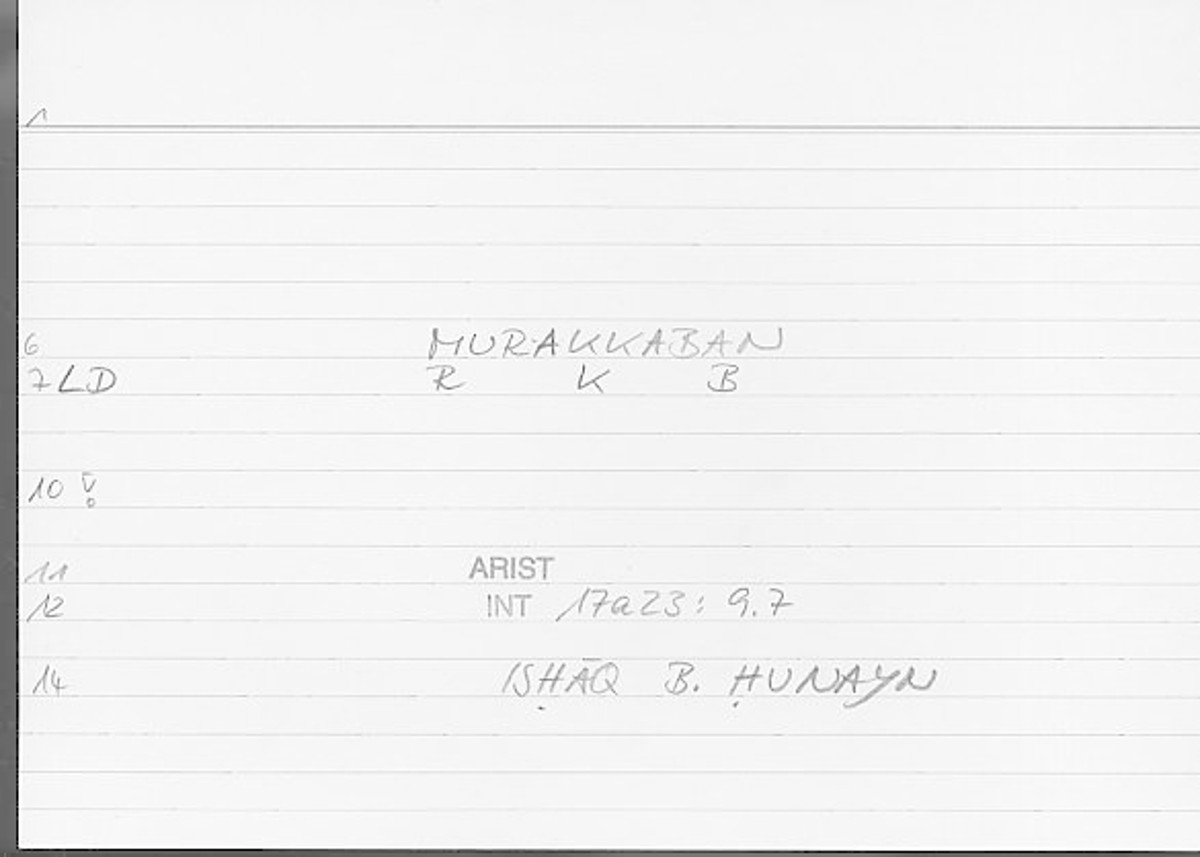 1
6 MURAKKABAN
7 LD R K B
10
11 ARIST
12 INT 17a23: 9.7
14 ISḤĀQ B. ḤUNAYN